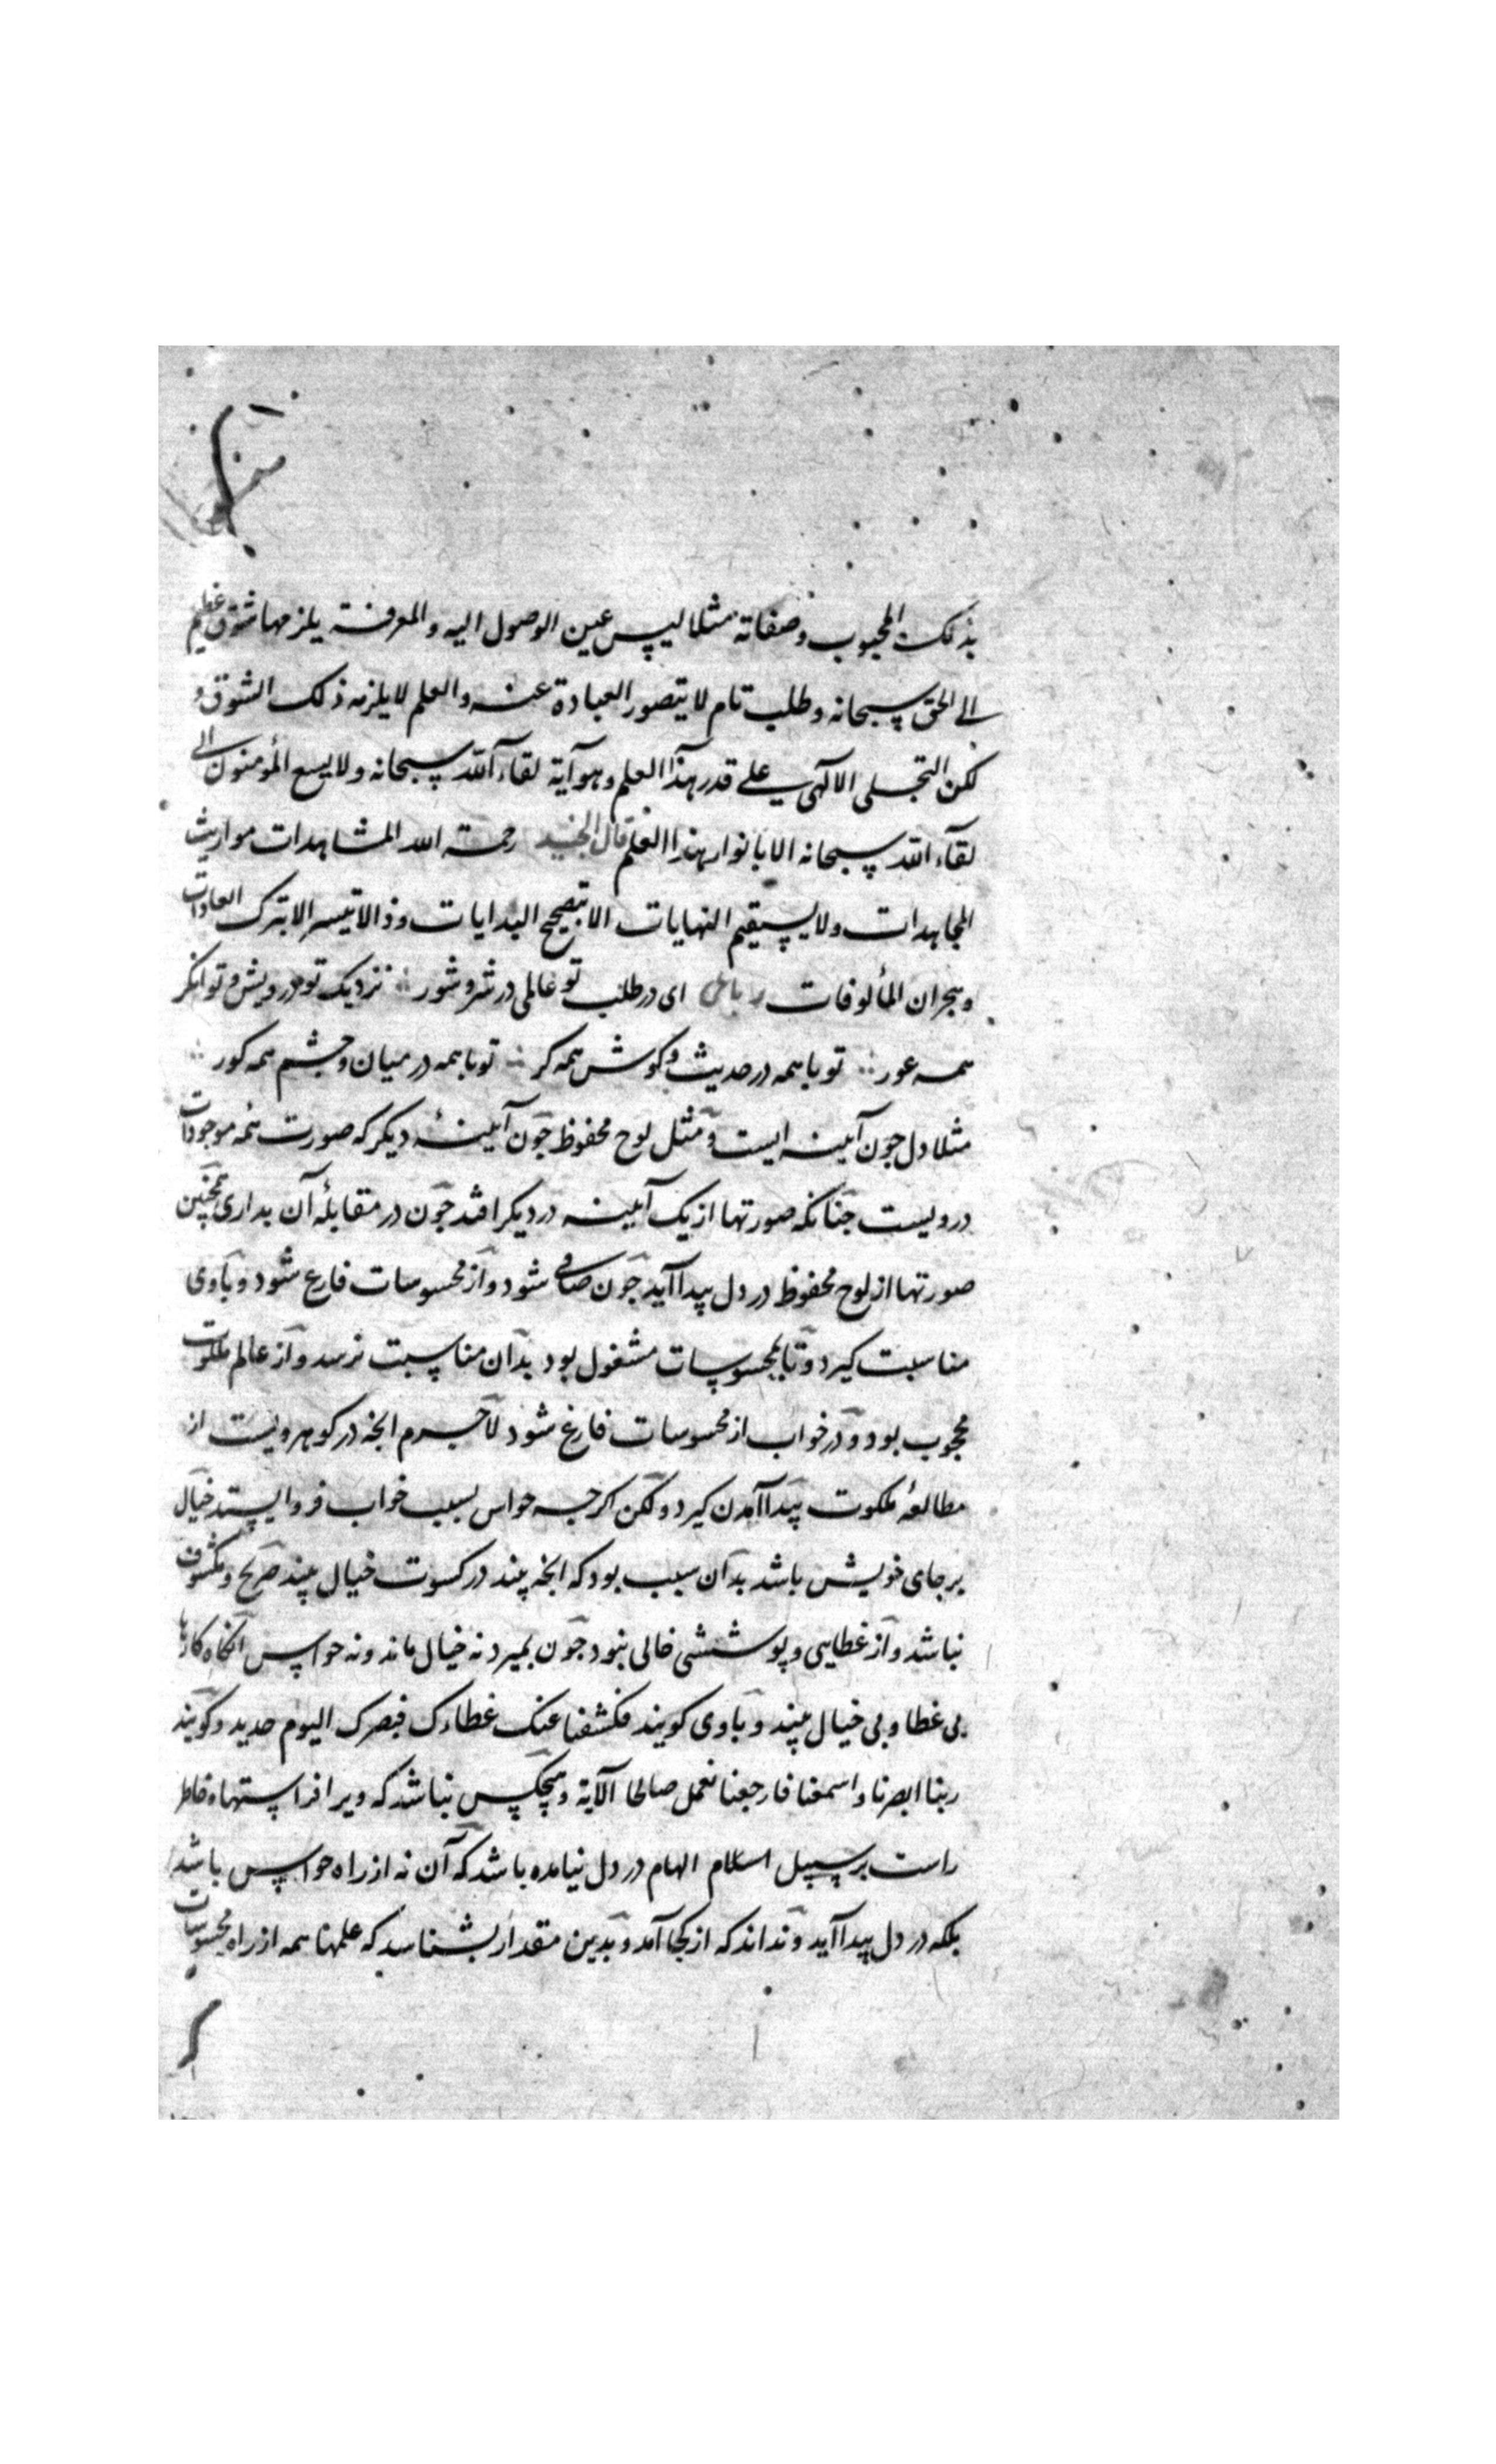 بذلک المحبوب وصفاته مثلا لیس عین الوصول الیه والمعرفة یلزمها شوق عظیم
الی الحق سبحانه وطلب تام لا یتصور العبادة عنه والعلم لا یلزمه ذلک الشوق و
لکن التجلی الالهی علی قدر هذا العلم وهو آیة لقاء الله سبحانه ولا یسع المؤمنون الی
لقاء الله سبحانه الا بانوار هذا العلم قال الجنید رحمة الله المشاهدات مواریث
المجاهدات ولا یستقیم النهایات الا بتصحیح البدایات وذا لا تیسر الا بترک العادات
وهجران المألوفات رباعی ای در طلب تو عالمی در شر و شور نزدیک تو درویش و توانکر
همه عور تو با همه در حدیث و کوش همه کر تو با همه در میان و چشم همه کور
مثلا دل چون آینه ایست و مثل لوح محفوظ چون آینۀ دیکر که صورت همه موجودات
درویست چنانکه صورتها از یک آینه در دیکر افتد چون در مقابلۀ آن بداری همچنین
صورتها از لوح محفوظ در دل پیدا آید چون صافی شود و از محسوسات فارغ شود و باوی
مناسبت کیرد و تا بمحسوسات مشغول بود بدان مناسبت نرسد و از عالم ملکوت
محجوب بود و در خواب از محسوسات فارغ شود لاجرم آنچه در کوهر ویست از
مطالعۀ ملکوت پیدا آمدن کیرد ولکن اکرچه حواس بسبب خواب فرو ایستد خیال
بر جای خویش باشد بدان سبب بود که آنچه بیند در کسوت خیال بیند صریح و مکشوف
نباشد و از غطایی و پوششی خالی نبود چون بمیرد نه خیال ماند و نه حواس آنکاه کارها
بی غطا و بی خیال بیند و باوی کویند فکشفنا عنک غطاءک فبصرک الیوم حدید و کویند
ربنا ابصرنا و اسمعنا فارجعنا نعمل صالحا الآیة و هیچکس نباشد که ویرا فراستها و خاطر
راست بر سبیل الهام در دل نیامده باشد که آن نه از راه حواس باشد
بلکه در دل پیدا آید و نداند که از کجا آمد و بدین مقدار بشناسد که علمها همه از راه محسوسات